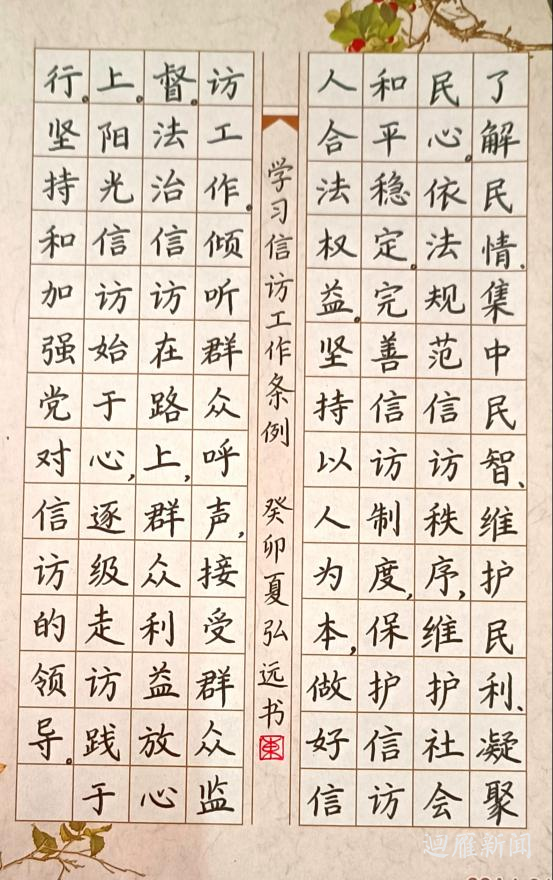 了解民情、集中民智、维护民利、凝聚
民心。依法规范信访秩序,维护社会
和平稳定。完善信访制度,保护信访
人合法权益。坚持以人为本,做好信
访工作。倾听群众呼声,接受群众监
督。法治信访在路上,群众利益放心
上。阳光信访始于心,逐级走访践于
行。坚持和加强党对信访的领导。
学习信访工作条例 癸卯夏弘远书
迴雁新闻